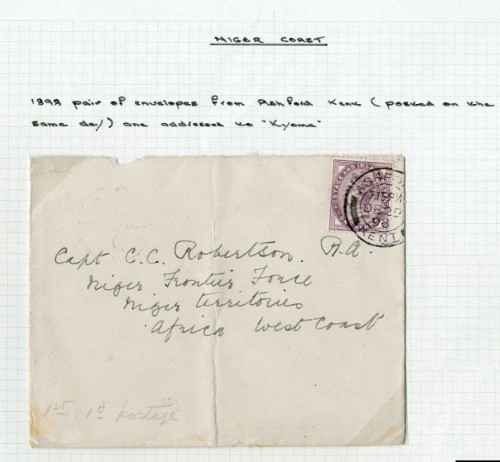 NIGER COAST
1898 pair of envelopes from Ashford Kent (posted on the
same day) one addressed to "Kyoma"
ASHFO
15PM
DE 29
98
KENT
Capt C.C. Robertson. R.A.
Niger Frontier Force
Niger territories
Africa West Coast
1st 1d postage